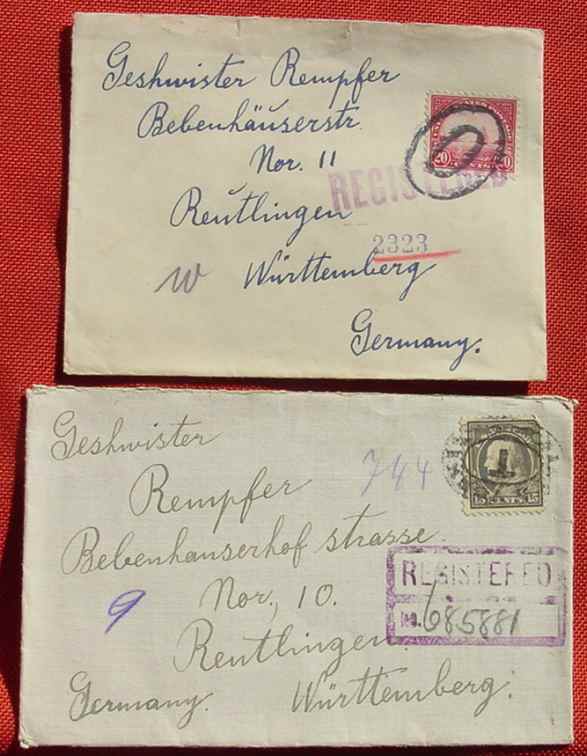 Geshwister Rempfer
Bebenhäuserstr.
Nor. 11
REGISTERED
Reutlingen
2323
W Württemberg
Germany.
Geshwister
744
Rempfer
Bebenhauserhof strasse.
REGISTERED
9 Nor, 10.
No. 685881
Reutlingen
Germany. Württemberg.